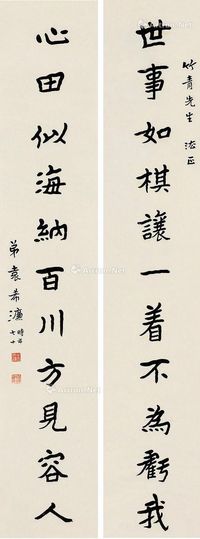 竹青先生 法正
世事如棋讓一着不為虧我
心田似海納百川方見容人
弟袁希濂 時年七十